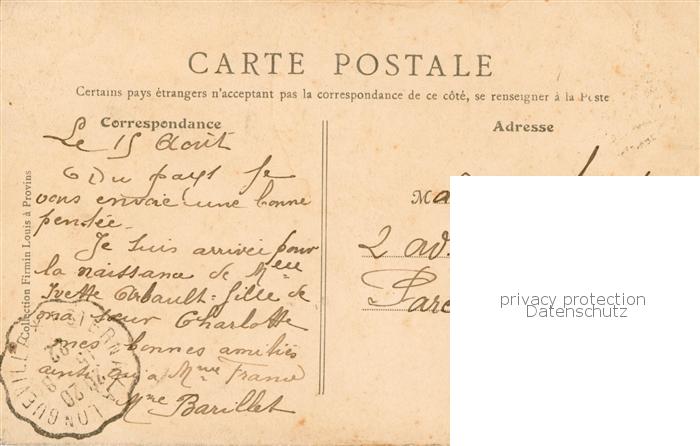 CARTE POSTALE
Certains pays étrangers n'acceptant pas la correspondance de ce côté, se renseigner à la Poste
Correspondance
Adresse
Le 15 Aout
Du pays je
vous envoie une bonne
pensée.
Je suis arrivée pour
la naissance de Melle
Yvette Arbault = fille de
ma sœur Charlotte
mes bonnes amitiés
ainsi qu'a Mme France
Mme Barillet
2 av.
Parc
Collection Firmin Louis à Provins
LONGUEVILLE
privacy protection
Datenschutz